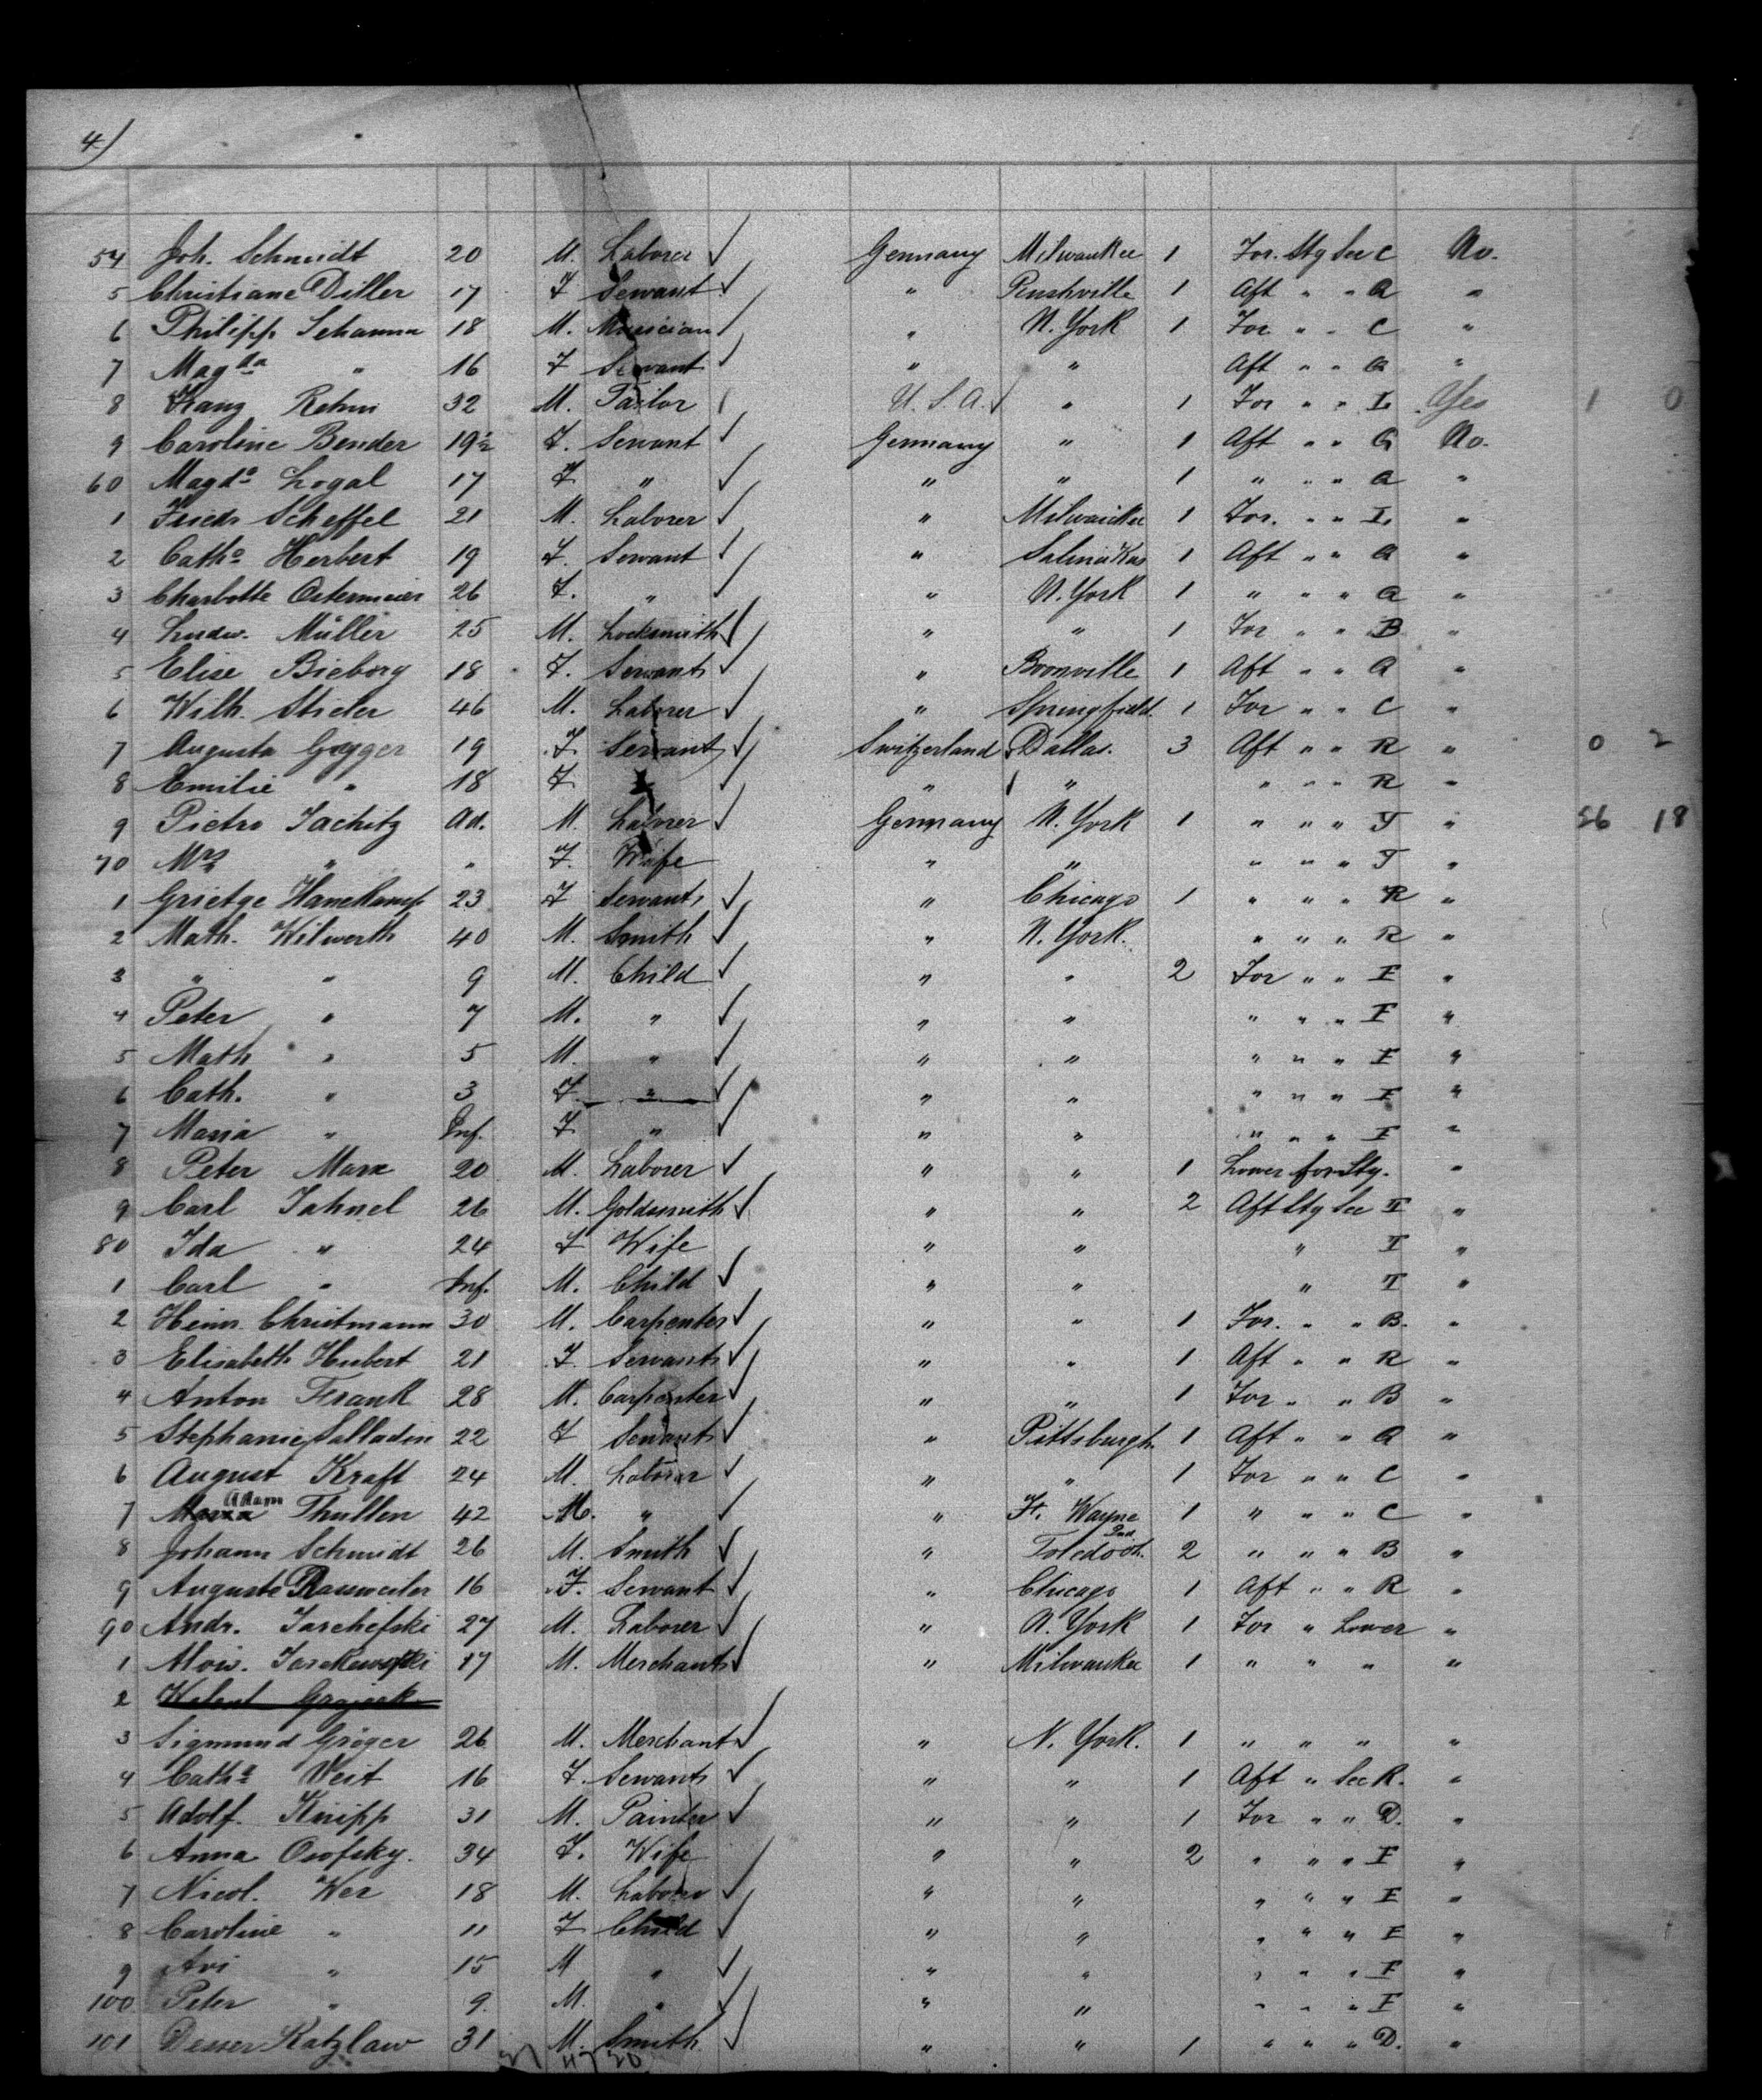 4)
54 Joh. Schmidt 20 M. Laborer ✓ Germany Milwaukee 1 For. Stg See C No.
5 Christiane Diller 17 F Servant ✓ " 1 Aft " " A "
6 Philipp Schamm 18 M. Musician ✓ " N. York 1 For. " " C "
7 Magda " 16 F Servant ✓ " " Aft " " A "
8 Franz Rehm 32 M. Tailor U. S. A. ✓ " 1 For " " I. Yes 1 0
9 Caroline Bender 19½ F. Servant ✓ Germany " 1 Aft " " A No.
60 Magda Logal 17 F " ✓ " " 1 " " " A "
1 Friedr Scheffel 21 M. Laborer ✓ " Milwaukee 1 For. " " I. "
2 Catha Herbert 19 F. Servant ✓ " Salina Kas 1 Aft " " A "
3 Charlotte Ostermeier 26 F. " ✓ " N. York 1 " " " A "
4 Ludw. Müller 25 M. Locksmith ✓ " " 1 For " " B "
5 Elise Bieberg 18 F. Servant ✓ " Boonville 1 Aft " " A "
6 Wilh. Stieler 46 M. Laborer ✓ " Springfield. 1 For " " C "
7 Augusta Gygger 19 F. Servant ✓ Switzerland Dallas. 3 Aft " " R " 0 2
8 Emilie " 18 F " ✓ " " " " " R "
9 Pietro Jachitz Ad. M. Laborer ✓ Germany N. York 1 " " " T " 56 18
70 Mrs " " F. Wife " " " " " T "
1 Grietge Hanekamp 23 F Servant ✓ " Chicago 1 " " " R "
2 Math. Wilwerth 40 M. Smith ✓ " N. York. " " " R "
3 " " 9 M. Child ✓ " " 2 For " " E "
4 Peter " 7 M. " ✓ " " " " " E "
5 Math " 5 M. " ✓ " " " " " E "
6 Cath. " 3 F. " ✓ " " " " " E "
7 Maria " Inf. F " ✓ " " " " " E "
8 Peter Marx 20 M. Laborer ✓ " " 1 Lower for Stg. "
9 Carl Jahnel 26 M. Goldsmith ✓ " " 2 Aft Stg See T "
80 Ida " 24 F Wife " " " T "
1 Carl " Inf. M. Child ✓ " " " T "
2 Heinr. Christmann 30 M. Carpenter ✓ " " 1 For. " " B. "
3 Elisabeth Hubert 21 F. Servant ✓ " " 1 Aft " " R "
4 Anton Frank 28 M. Carpenter ✓ " " 1 For " " B "
5 Stephanie Salladin 22 F Servant ✓ " Pittsburgh 1 Aft " " A "
6 August Kraft 24 M. Laborer ✓ " " 1 For " " C "
7 Adam Thullen 42 M. " ✓ " Ft. Wayne Ind. 1 " " " C "
8 Johann Schmidt 26 M. Smith ✓ " Toledo Oh. 2 " " " B "
9 Auguste Rauweiler 16 F. Servant ✓ " Chicago 1 Aft " " R "
90 Andr. Jarchefski 27 M. Laborer ✓ " N. York 1 For " Lower "
1 Alois. 17 M. Merchant ✓ " Milwaukee 1 " " " "
2
3 Sigmund Gröger 26 M. Merchant ✓ " N. York. 1 " " " "
4 Catha Veit 16 F. Servant ✓ " " 1 Aft " See R. "
5 Adolf. Knipp 31 M. Painter ✓ " " 1 For " " D. "
6 Anna Osofsky. 34 F. Wife " " 2 " " " E "
7 Nicol. Wer 18 M. Laborer ✓ " " " " " E "
8 Caroline " 11 F Child ✓ " " " " " E "
9 Avi " 15 M " ✓ " " " " " E "
100 Peter " 9. M. " ✓ " " " " " E "
101 Desser Katzlaw 31 M. Smith ✓ " " 1 " " " D. "